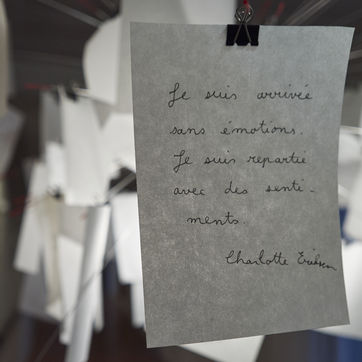 Je suis arrivée
sans émotions.
Je suis repartie
avec des senti-
ments.
Charlotte